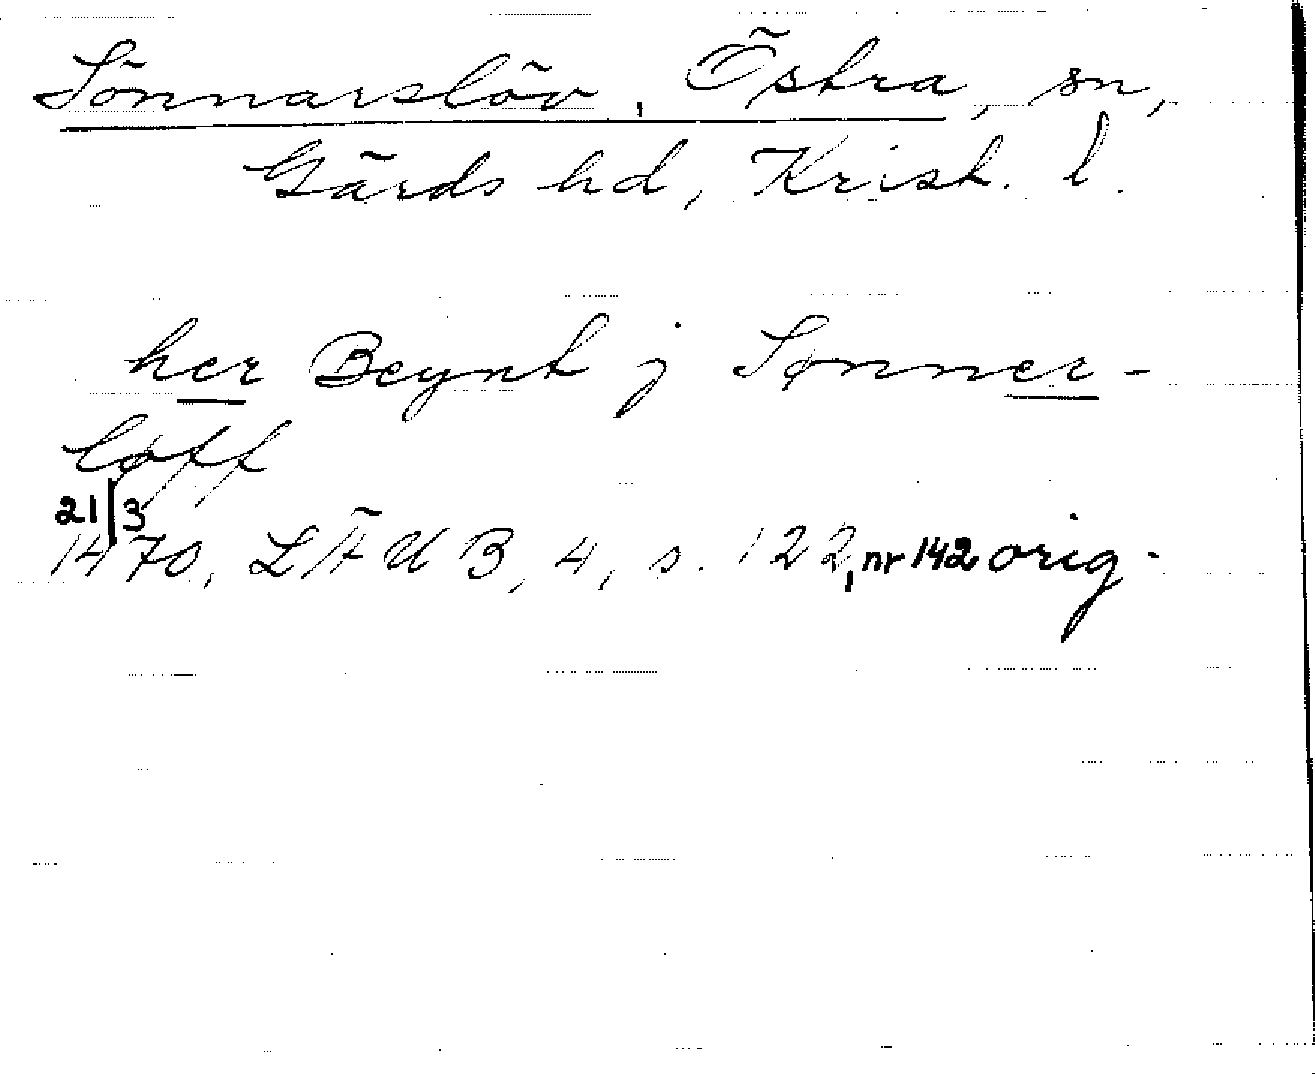 Sönnarslöv, Östra, sn,
Gärds hd, Krist. l.
her Beynt j Sønner-
løff
21/3
1470, LÄUB, 4, s. 122, nr 142 orig.